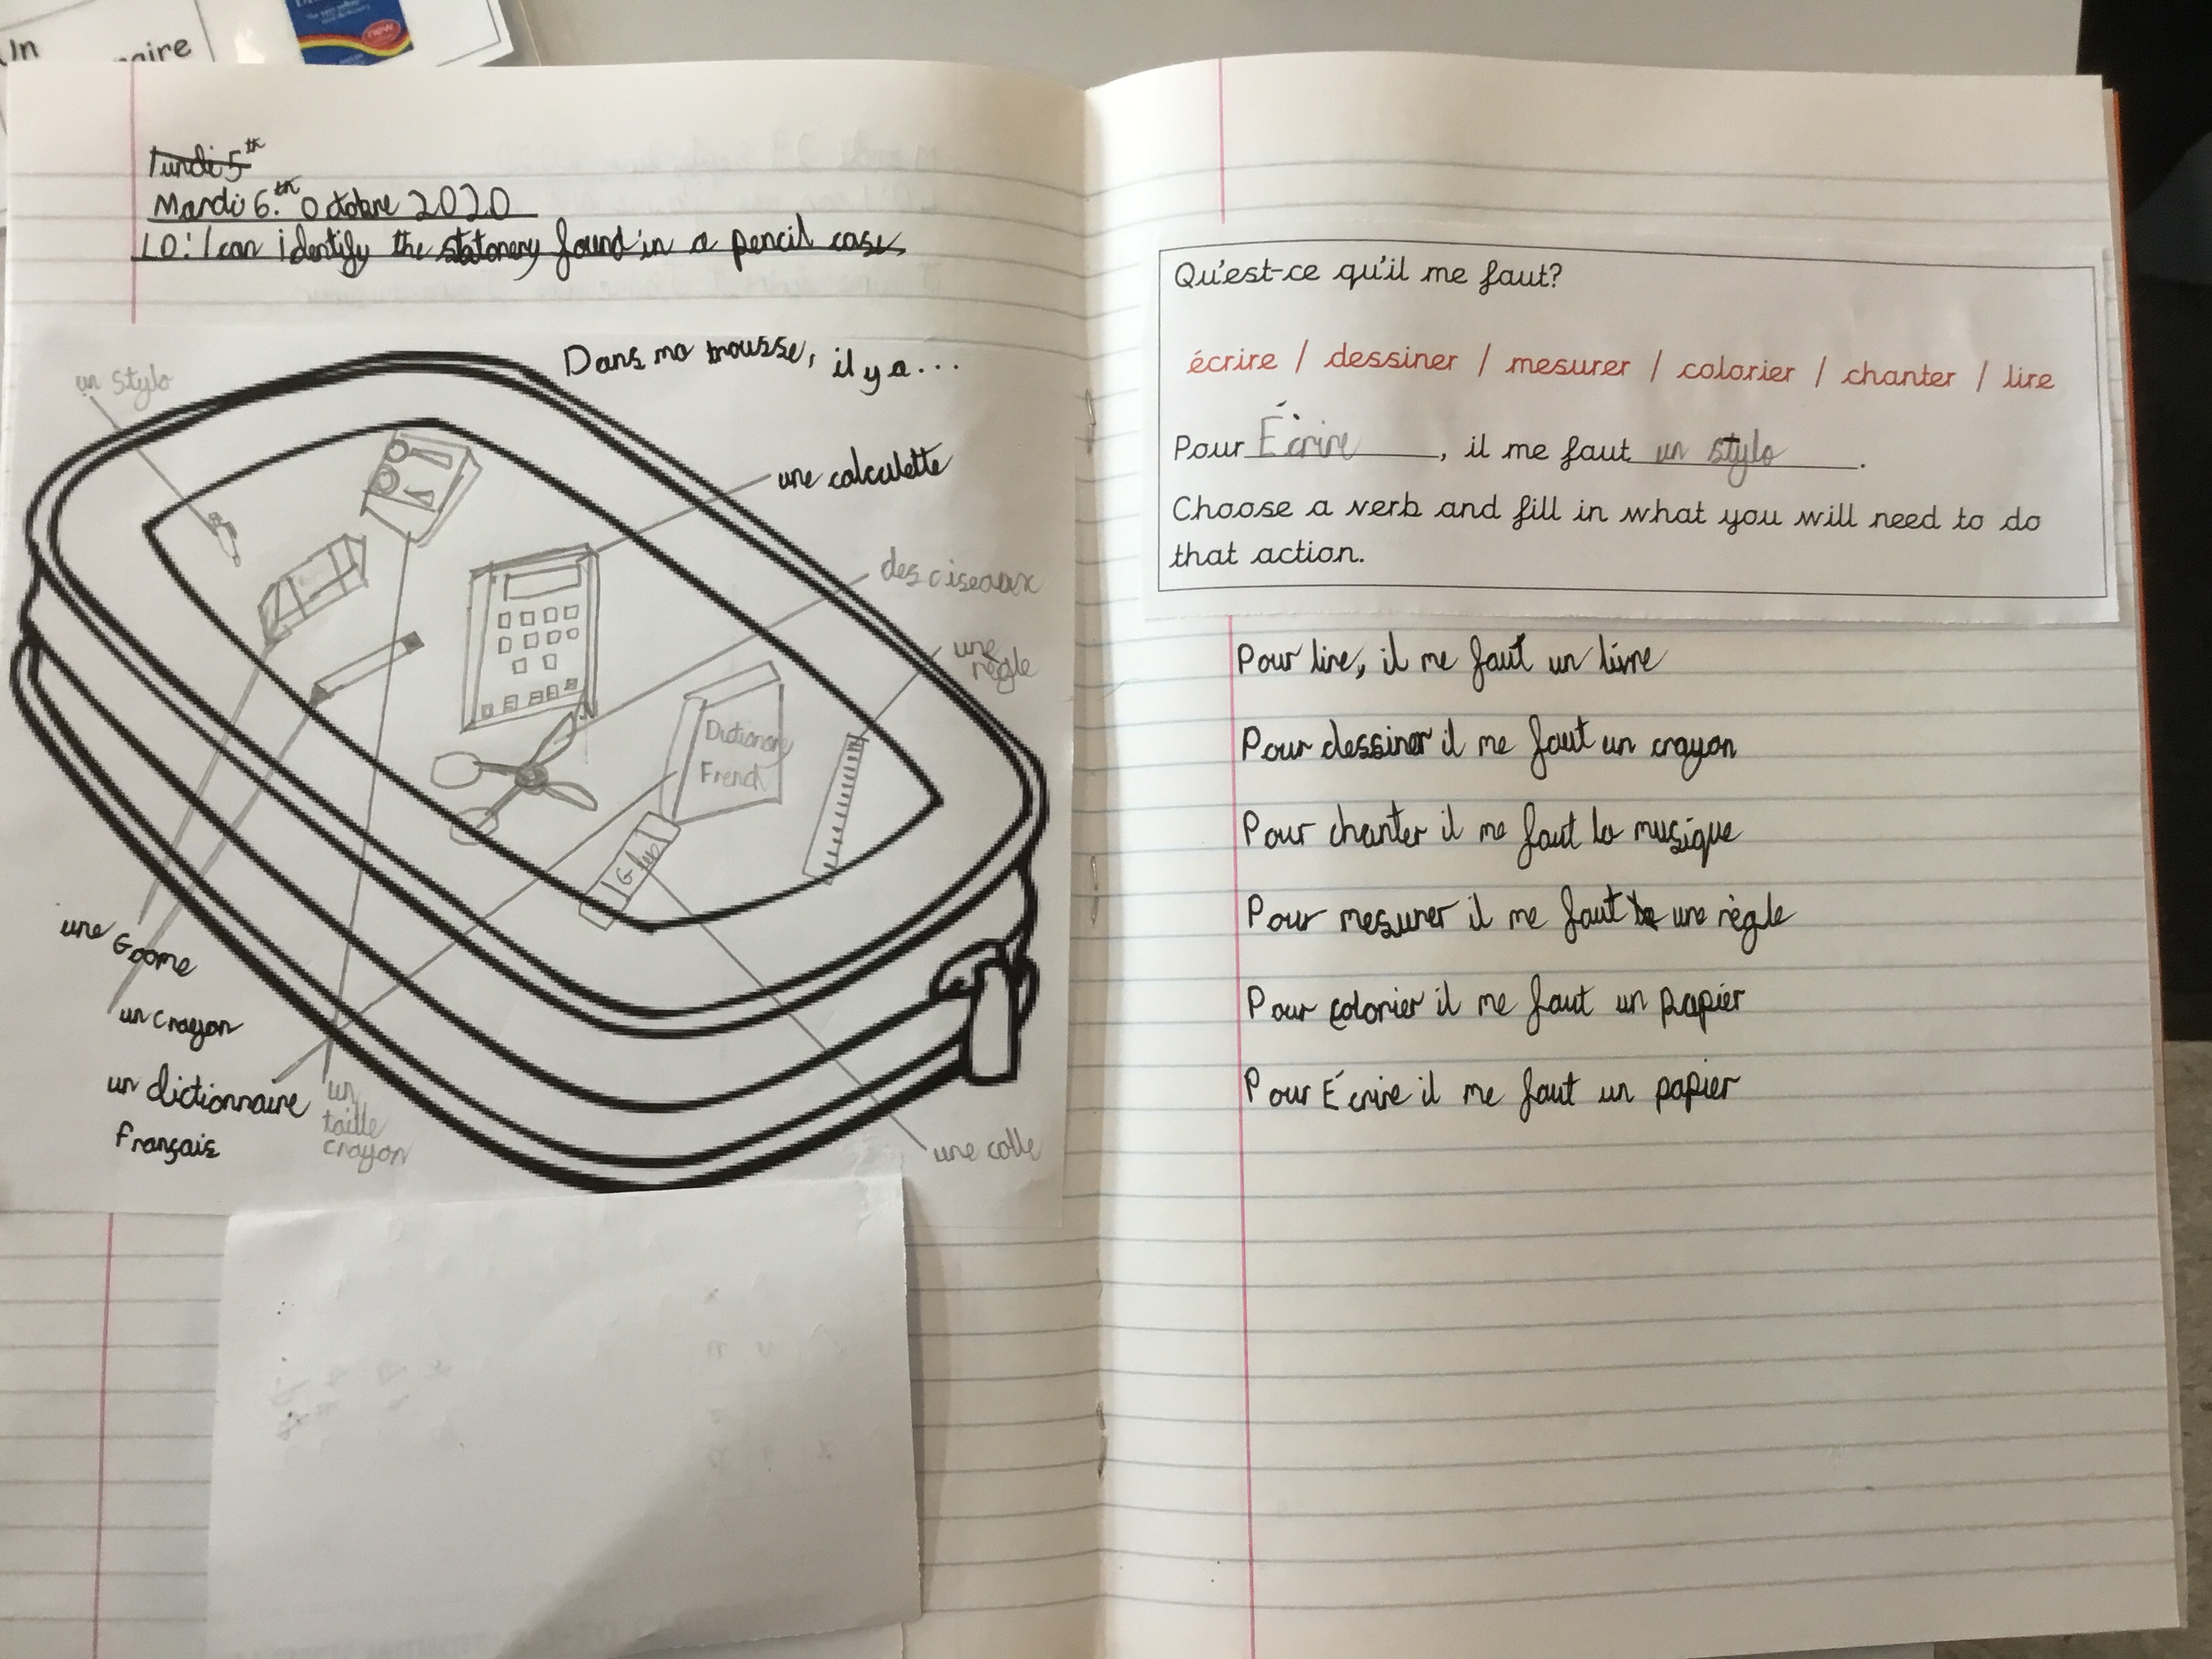 Un
naire
new
lundi 5th
Mardi 6.th Octobre 2020
LO: I can identify the statonery found in a pencil case
Dans ma trousse, il y a...
un stylo
une calculette
des ciseaux
une
règle
Dictionary
French
Glue
une Gome
un crayon
un dictionnaire
Français
un
taille
crayon
une colle
Qu'est-ce qu'il me faut?
écrire / dessiner / mesurer / colorier / chanter / lire
Pour Écrire, il me faut un stylo.
Choose a verb and fill in what you will need to do
that action.
Pour lire, il me faut un livre
Pour dessiner il me faut un crayon
Pour chanter il me faut la musique
Pour mesurer il me faut une règle
Pour colorier il me faut un papier
Pour Écrire il me faut un papier